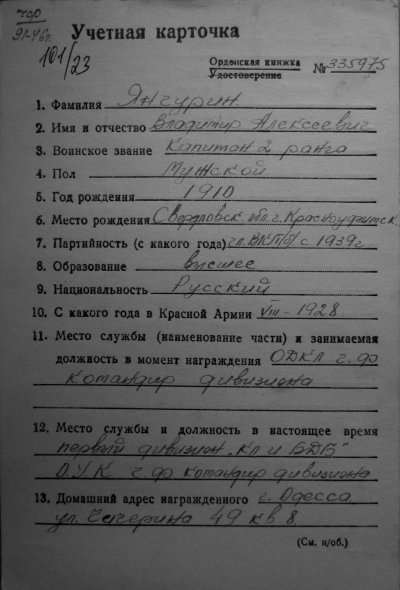 ЧФ
91-46г.
101/23
Учетная карточка
Орденская книжка
Удостоверение
№ 335975
1. Фамилия Янчурин
2. Имя и отчество Владимир Алексеевич
3. Воинское звание Капитан 2 ранга
4. Пол Мужской
5. Год рождения 1910
6. Место рождения Свердловск. обл. г. Красноуфимск
7. Партийность (с какого года) чл. ВКП(б) с 1939г
8. Образование высшее
9. Национальность Русский
10. С какого года в Красной Армии VIII-1928
11. Место службы (наименование части) и занимаемая
должность в момент награждения ОДКЛ ч.ф
командир дивизиона
12. Место службы и должность в настоящее время
первый дивизион „КЛ и БДБ"
О.У.К ч.ф командир дивизиона
13. Домашний адрес награжденного г. Одесса
ул. Чичерина 49 кв 8
(См. н/об.)